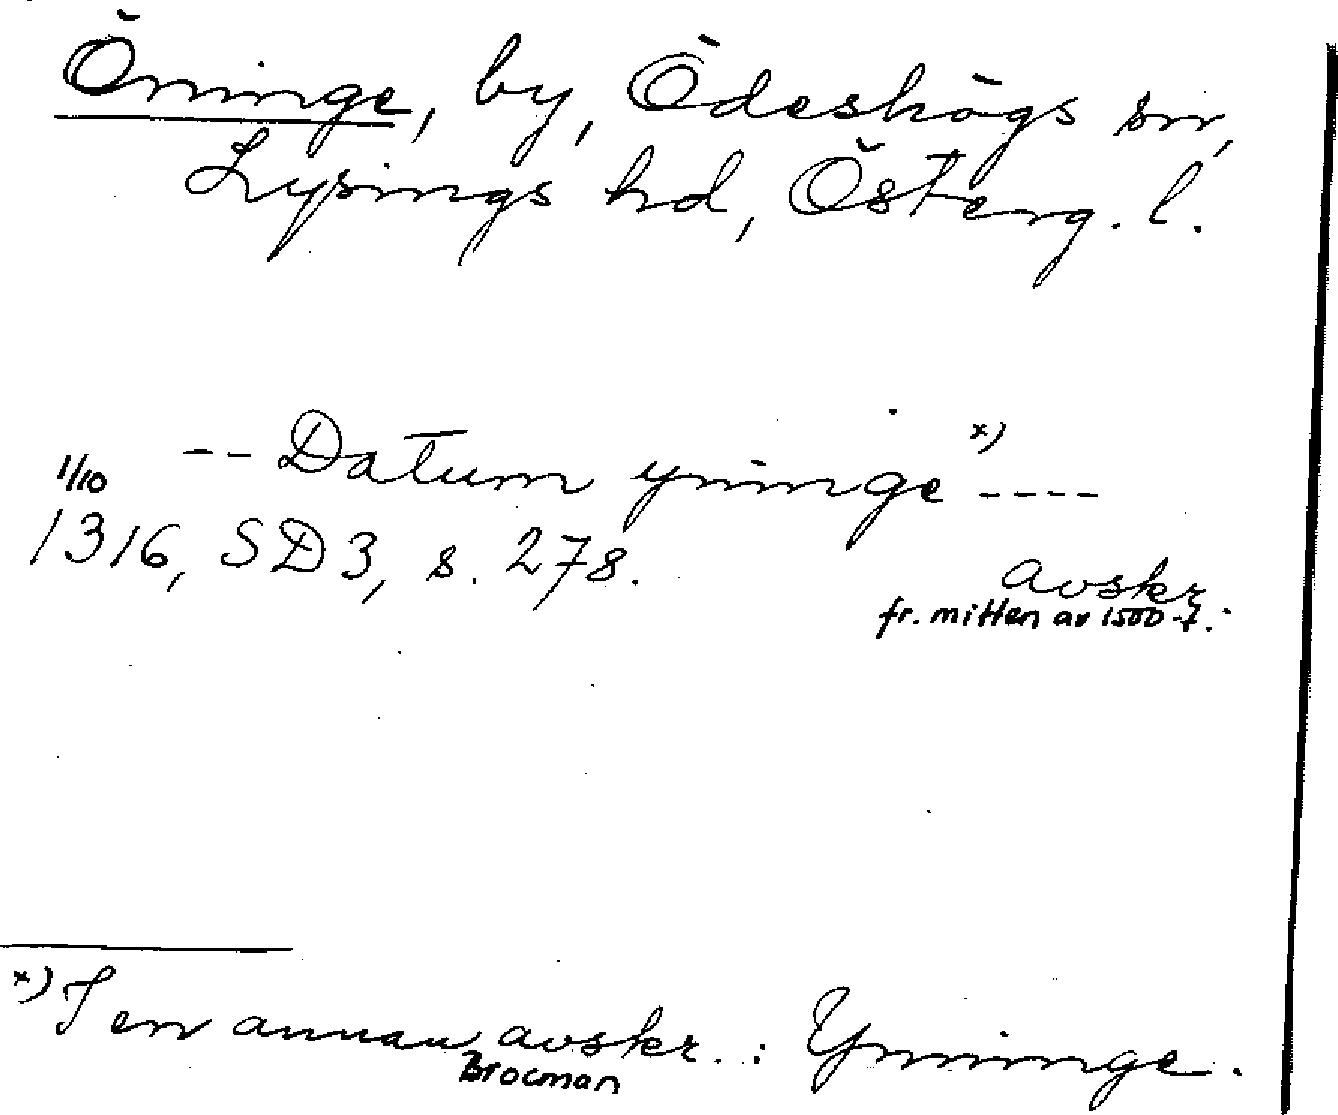 Öninge, by, Ödeshögs sn,
Lysings hd, Österg. l.
-- Datum yninge x) ----
1/10
1316, SD3, s. 278.
avskr.
fr. mitten av 1500-t.
x) I en annan avskr. : Ynninge.
Brocman